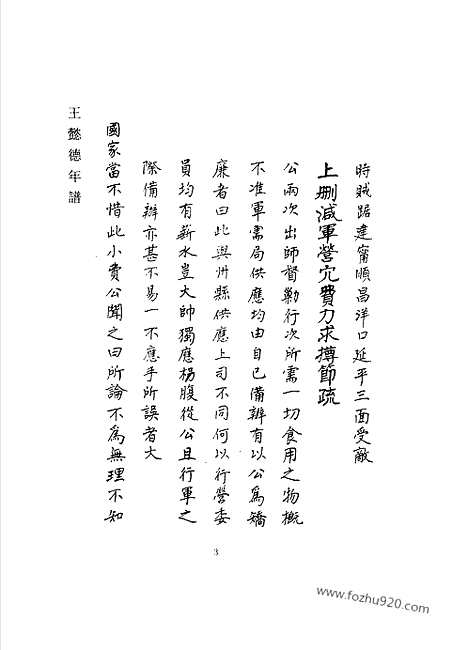 時賊踞建甯順昌洋口延平三面受敵
上刪減軍營冗費力求撙節疏
公兩次出師督勦行次所需一切食用之物概
不准軍需局供應均由自已備辦有以公為矯
廉者曰此與州縣供應上司不同何以行營委
員均有薪水豈大帥獨應枵腹從公且行軍之
際備辦亦甚不易一不應手所誤者大
國家當不惜此小費公聞之曰所論不為無理不知
王懿德年譜
3
www.fozhu920.com